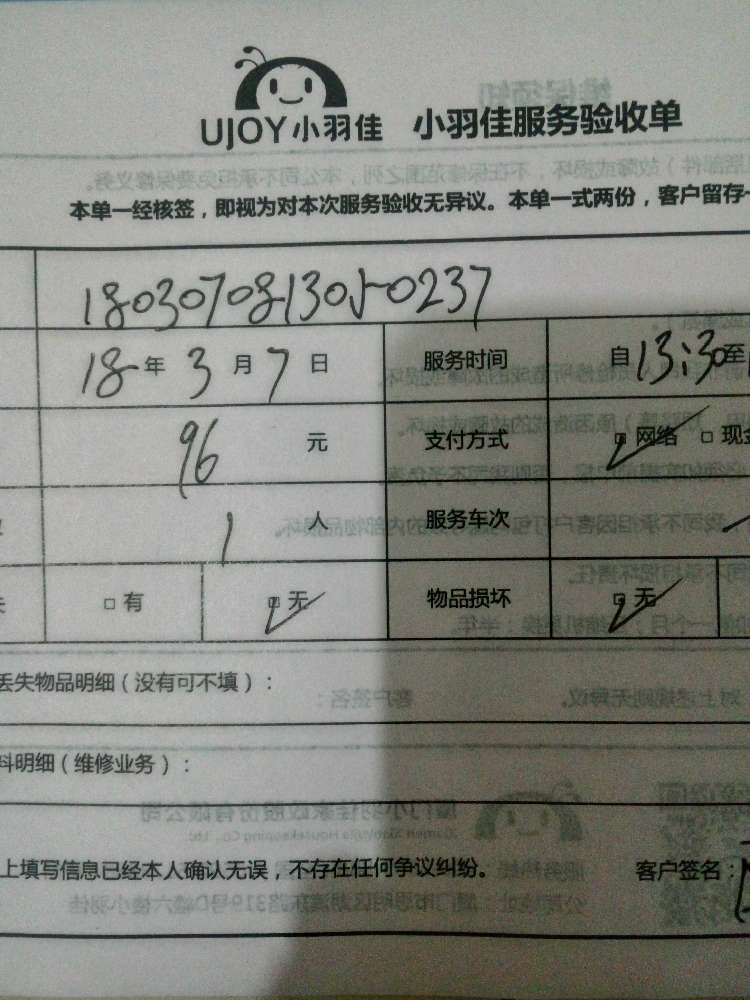 UJOY小羽佳 小羽佳服务验收单
本单一经核签，即视为对本次服务验收无异议。本单一式两份，客户留存一
1803070813050237
18年3月7日 服务时间 自13:30至
96元 支付方式 □网络 □现金
1人 服务车次
□有 □无 物品损坏 □无
丢失物品明细（没有可不填）：
料明细（维修业务）：
上填写信息已经本人确认无误，不存在任何争议纠纷。 客户签名：